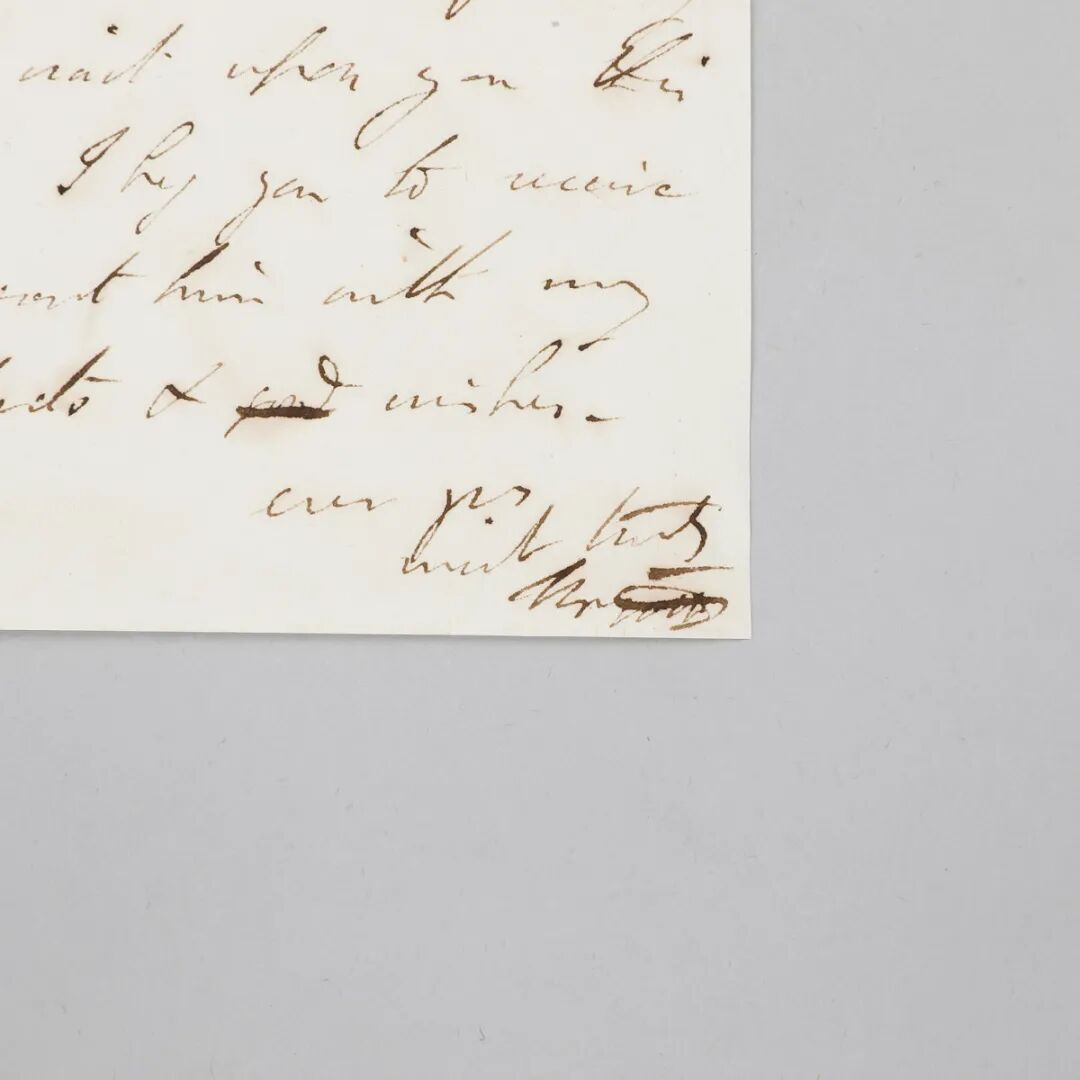 wait upon you this
I beg you to receive
him with my
& good wishes -
ever yrs
most truly